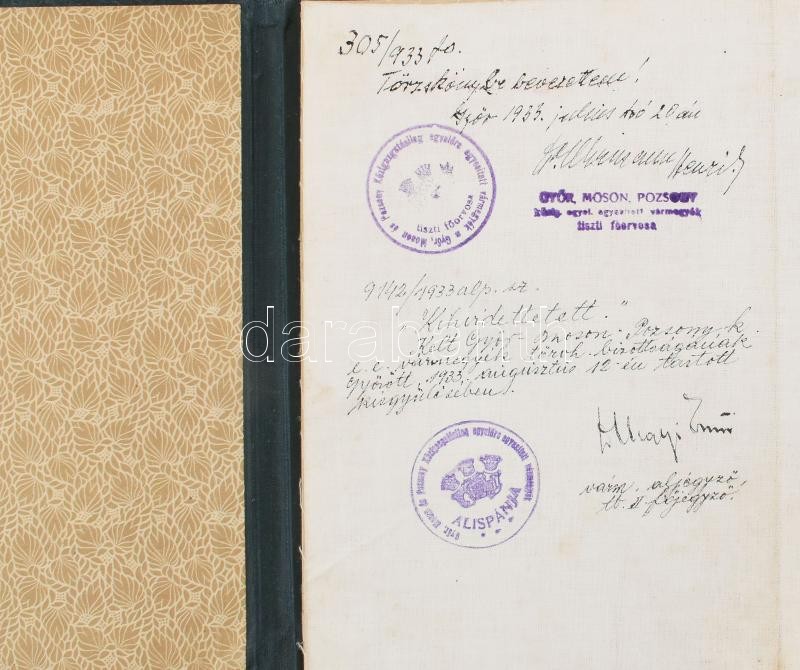 305/933 fo.
Törzskönyvbe bevezettem!
Győr 1933. július hó 20án
Henrik
Győr, Moson és Pozsony Közigazgatásilag egyelőre egyesített vármegyék
tiszti főorvosa
GYŐR, MOSON, POZSONY
közig. egyel. egyesített vármegyék
tiszti főorvosa
9142/1933 alp. sz.
"Kihirdettetett."
Kelt Győr Moson Pozsony k.
e. e. vármegyék törvh. bizottságának
Győrött, 1933. augusztus 12-én tartott
kisgyűlésében.
Győr, Moson és Pozsony Közigazgatásilag egyelőre egyesített vármegyék
ALISPÁNJA
várm. aljegyző
tb. II. főjegyző.
darabanth.com